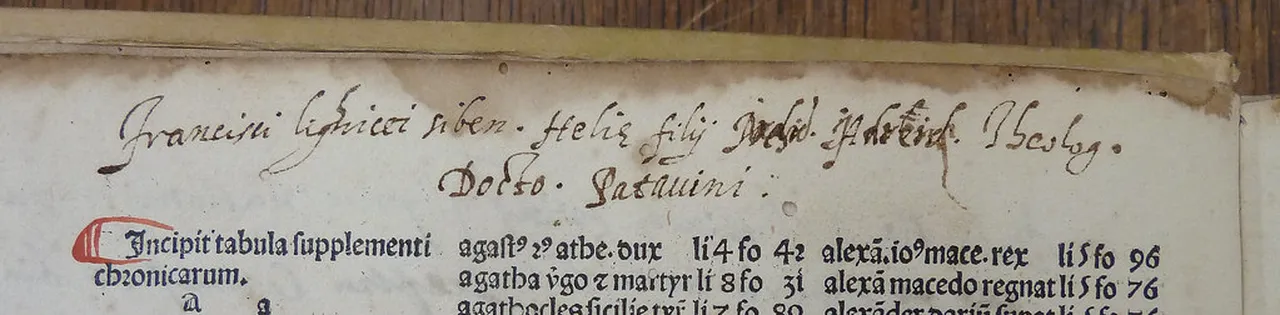 Francisci lighnicei siben. Helię filij
Theolog.
Docto. Patavini :
Incipit tabula supplementi
chronicarum.
A a
agastꝰ ⁊ꝰ athe. dux li 4 fo 42
agatha v̄go ⁊ martyr li 8 fo 31
agathocles sicilie tyr̄ li 7 fo 89
alexā. ioꝰ mace. rex li 5 fo 96
alexā macedo regnat li 5 fo 76